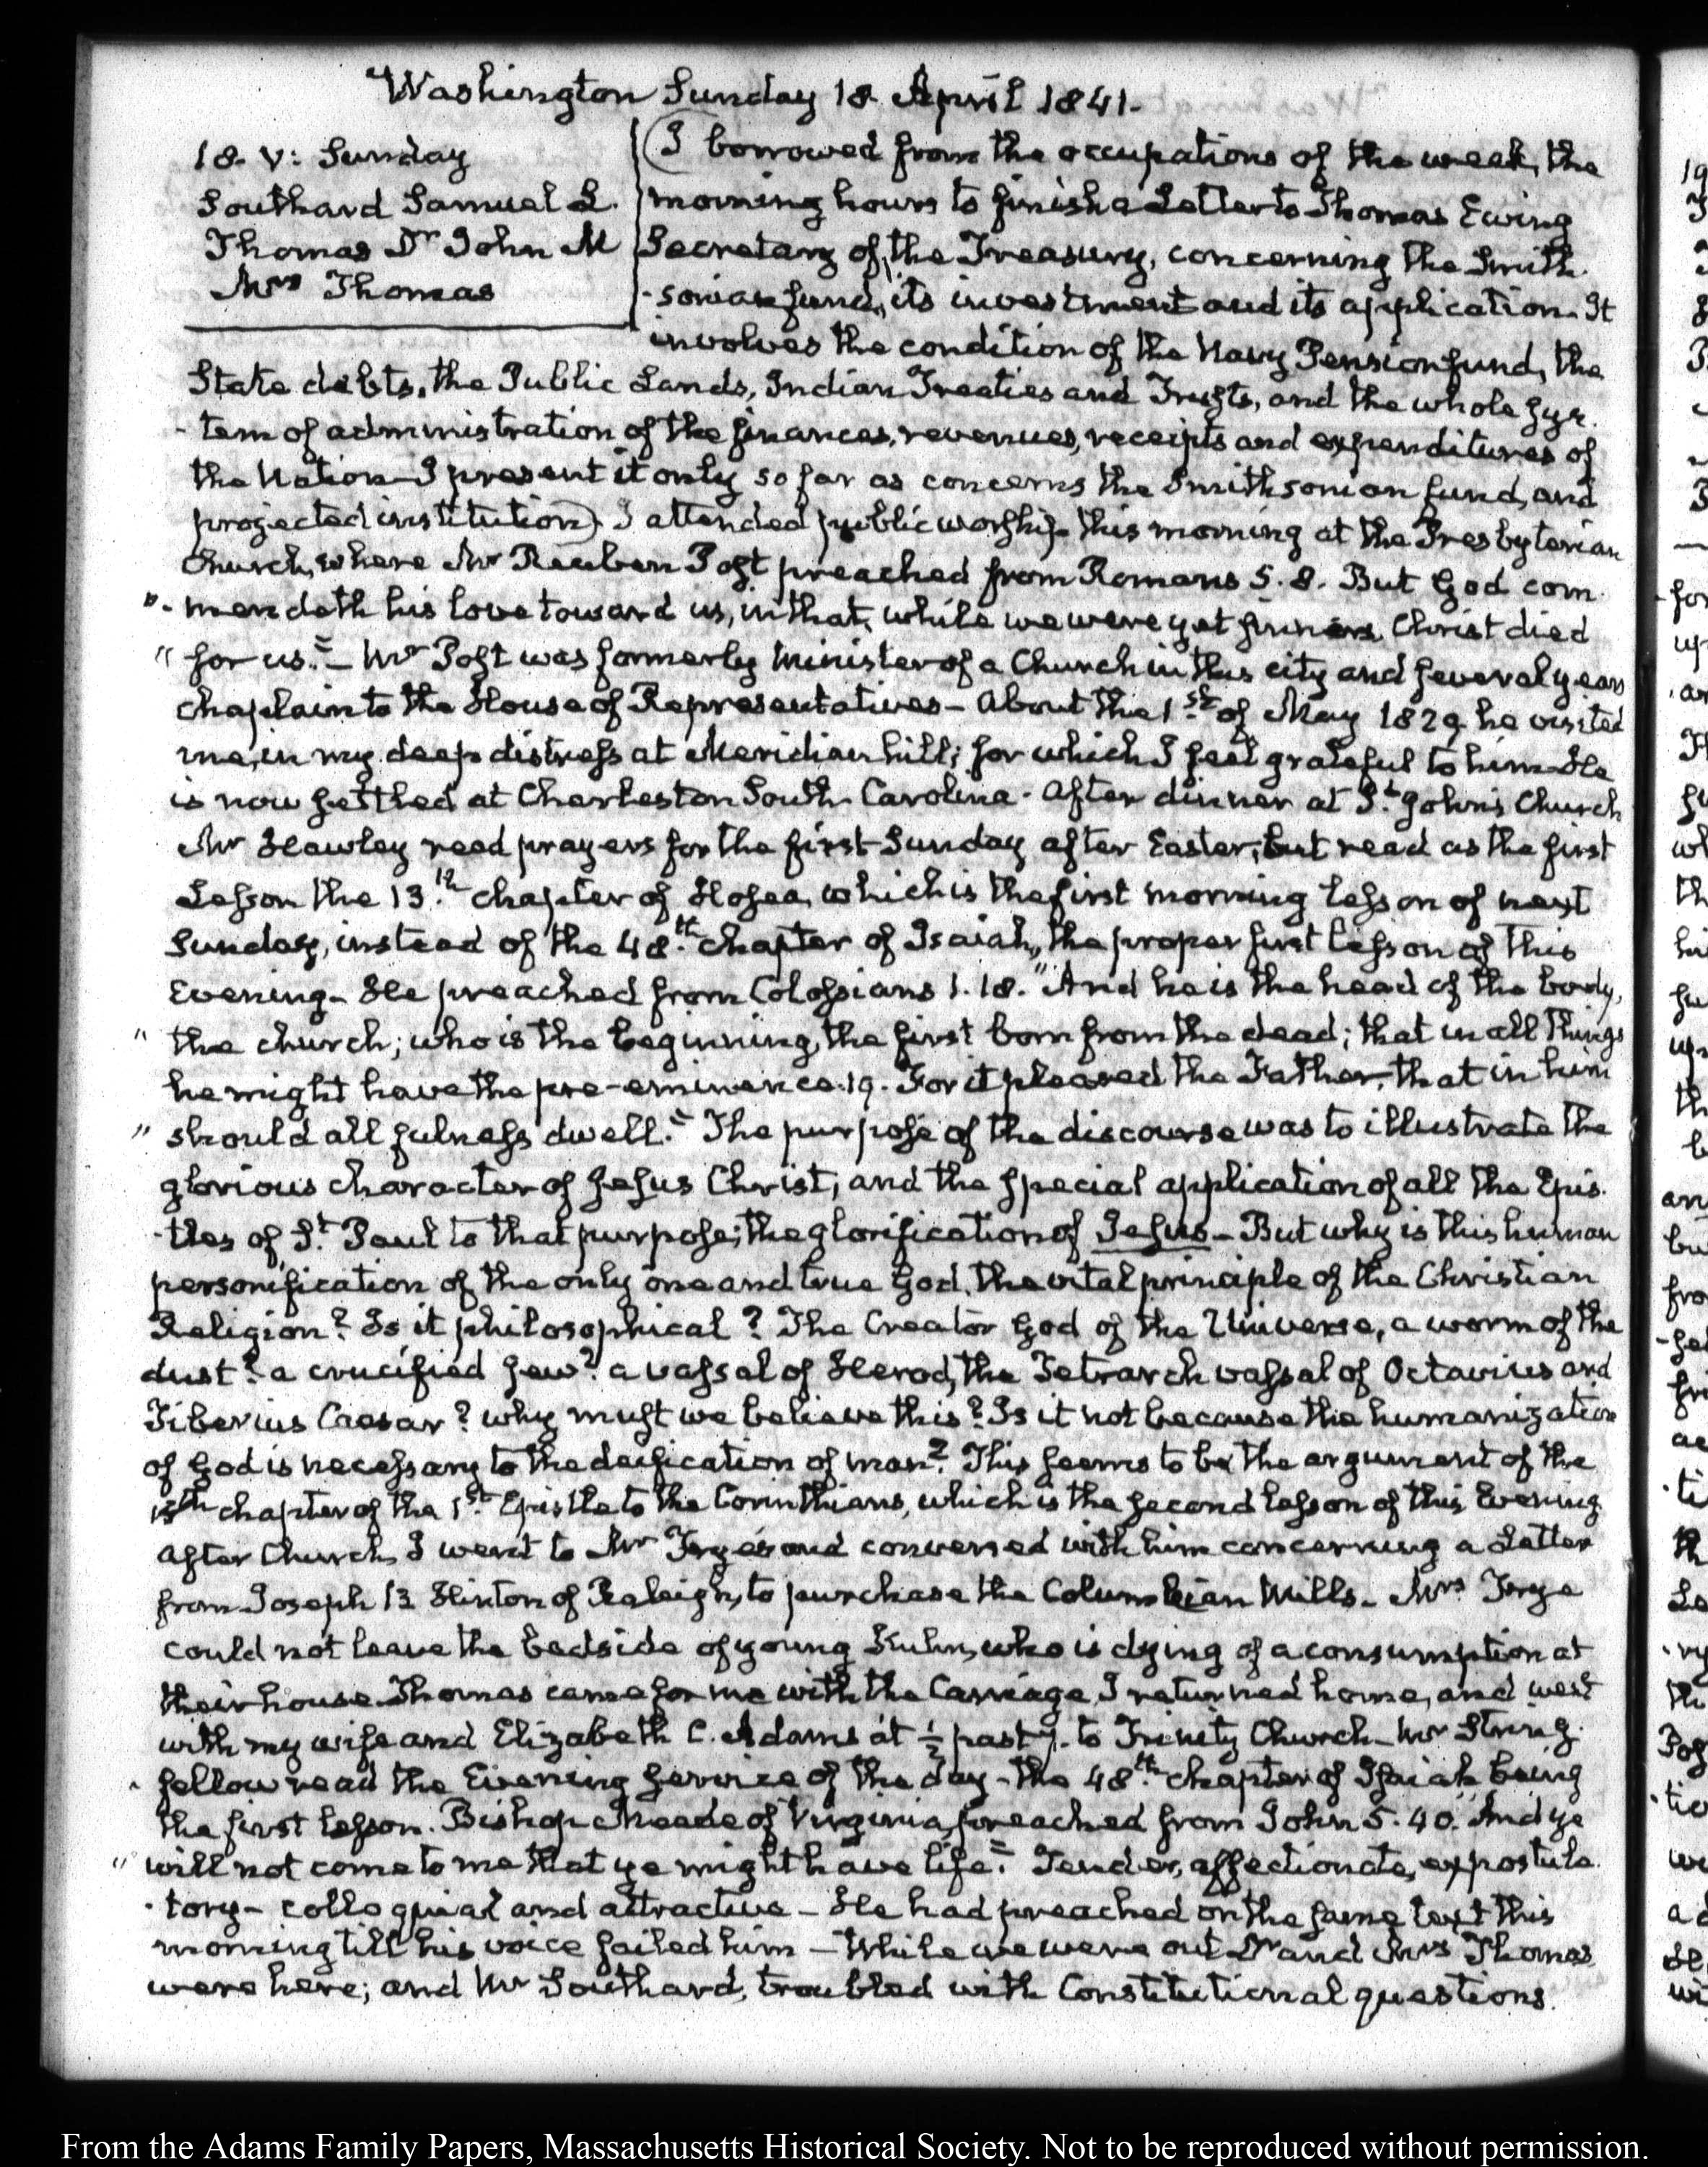 Washington Sunday 18. April 1841.
18. V: Sunday
Southard Samuel L.
Thomas Dr John M
Mrs Thomas
(I borrowed from the occupations of the week, the
morning hours to finish a Letter to Thomas Ewing
Secretary of the Treasury, concerning the Smith-
-sonian fund, its investment and its application. It
involves the condition of the Navy Pension fund, the
State debts, the Public Lands, Indian Treaties and Trusts, and the whole sys-
-tem of administration of the finances, revenues, receipts and expenditures of
the Nation—I present it only so far as concerns the Smithsonian fund, and
projected institution) I attended public worship this morning at the Presbyterian
Church, where Mr Reuben Post preached from Romans 5. 8. But God com-
"-mendeth his love toward us, in that, while we were yet sinners, Christ died
"for us."— Mr Post was formerly Minister of a Church in this city and several years
Chaplain to the House of Representatives— About the 1st. of May 1829. he visited
me, in my deep distress at Meridian hill; for which I feel grateful to him. He
is now settled at Charleston South Carolina. After dinner at St. John's Church
Mr Hawley read prayers for the first Sunday after Easter, but read as the first
Lesson the 13.th chapter of Hosea, which is the first morning lesson of next
Sunday, instead of the 48.th chapter of Isaiah, the proper first lesson of this
Evening— He preached from Colossians 1. 18. "And he is the head of the body,
"the church; who is the beginning, the first born from the dead; that in all things
he might have the pre-eminence. 19. For it pleased the Father, that in him
"should all fulness dwell." The purpose of the discourse was to illustrate the
glorious character of Jesus Christ, and the special application of all the Epis-
-tles of St. Paul to that purpose; the glorification of Jesus— But why is this human
personification of the only one and true God, the vital principle of the Christian
Religion? Is it philosophical? The Creator God of the Universe, a worm of the
dust? a crucified Jew? a vassal of Herod, the Tetrarch vassal of Octavius and
Tiberius Caesar? why must we believe this? Is it not because the humanization
of God is necessary to the deification of man? This seems to be the argument of the
15th chapter of the 1st. Epistle to the Corinthians, which is the second lesson of this Evening.
After Church, I went to Mr Frye's and conversed with him concerning a Letter
from Joseph B Hinton of Raleigh, to purchase the Columbian Mills— Mrs. Frye
could not leave the bedside of young Kuhn, who is dying of a consumption at
their house. Thomas came for me with the Carriage, I returned home, and went
with my wife and Elizabeth C. Adams at ½ past 7. to Trinity Church— Mr String-
-fellow read the Evening service of the day— the 48.th chapter of Isaiah being
the first lesson. Bishop Meade of Virginia, preached from John 5. 40. "And ye
"will not come to me that ye might have life." Tender, affectionate, expostula-
-tory— colloquial and attractive— He had preached on the same text this
morning till his voice failed him— While we were out Dr and Mrs Thomas
were here; and Mr Southard, troubled with Constitutional questions.
From the Adams Family Papers, Massachusetts Historical Society. Not to be reproduced without permission.